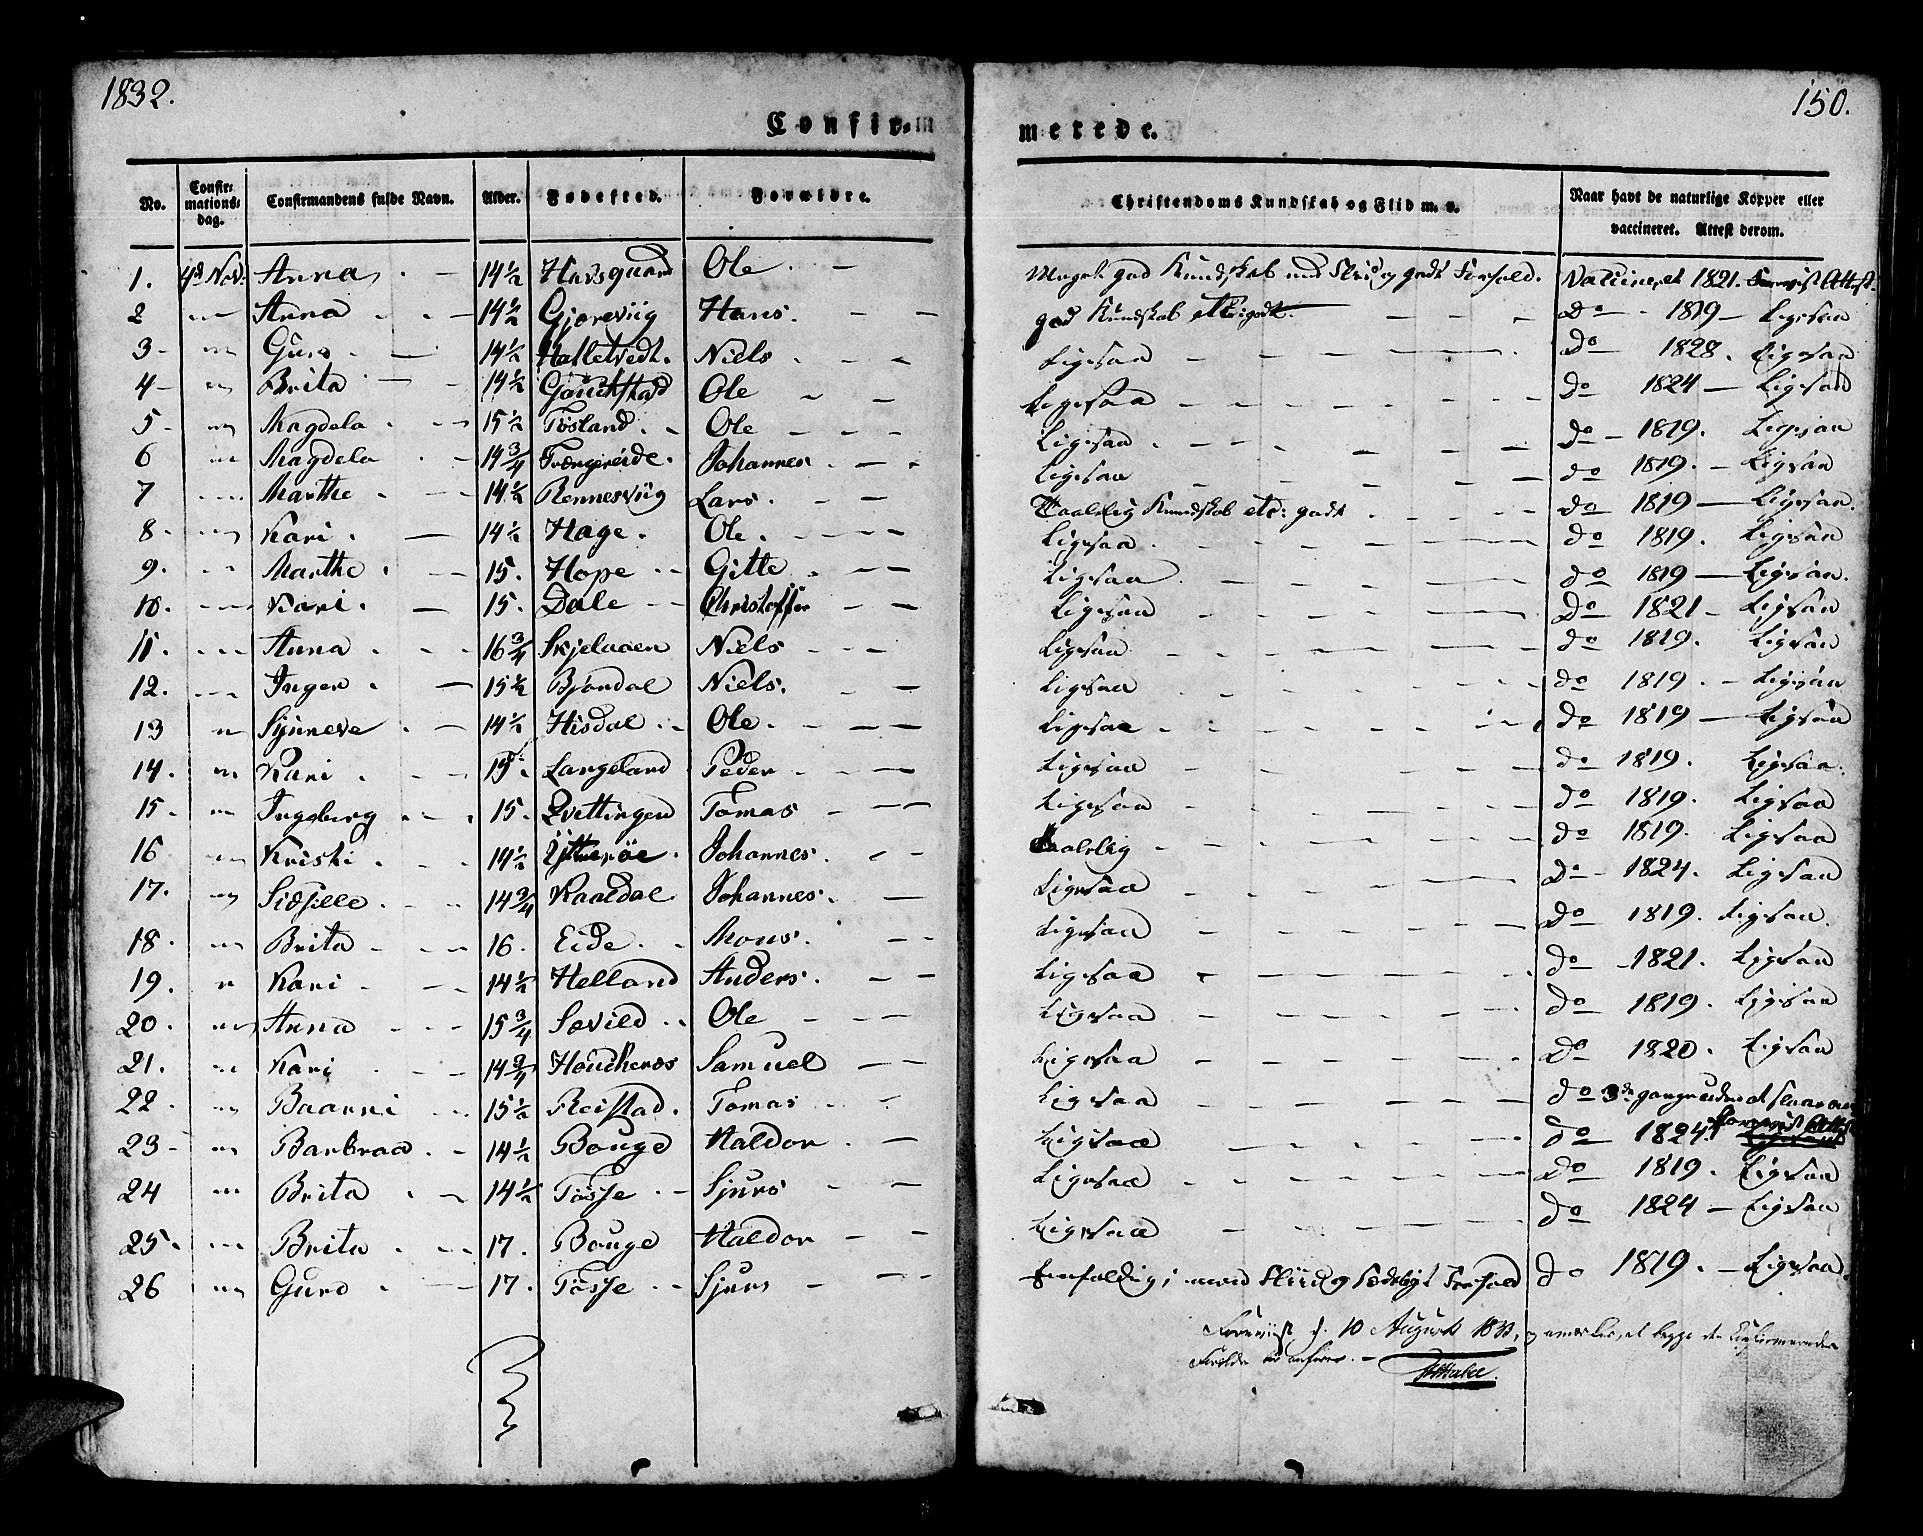 1832.
150.
Confir-
merede.
No. Confir-mations-dag. Confirmandens fulde Navn. Alder. Fødested. Forældre. Christendoms Kundskab og Flid m. v. Naar havt de naturlige Kopper eller vaccineret. Attest derom.
1. 4de Nov: Anna 14½ Ole Meget god Kundskab med Fliid og godt Forhold. Vaccineret 1821. Attest
2 Anna 14½ Gjereviig Hans. god Kundskab etc: godt. Do 1819 Ligesaa
3 Guro 14½ Halletvedt. Niels Ligesaa Do 1828. Ligesaa
4 Brita 14½ Ole Ligesaa do 1824 Ligesaa
5 Magdela 15½ Tøsland Ole Ligesaa do 1819. Ligesaa
6 Magdela 14¾ Trængereide. Johannes Ligesaa do 1819. Ligesaa
7 Marthe 14½ Rennesviig Lars. Taalelig Kundskab etc: godt do 1819 Ligesaa.
8 Kari 14½ Hage. Ole. Ligesaa do 1819. Ligesaa
9. Marthe 15. Hope Gitte Ligesaa do 1819 Ligesaa.
10. Kari. 15. Dale Christoffer Ligesaa Do 1821 Ligesaa
11. Anna 16¾ Skjelaaen Niels Ligesaa do 1819. Ligesaa
12. Inger 15½ Bjørdal Niels. Ligesaa do 1819. Ligesaa
13 Synneve 14½ Hisdal Ole. Ligesaa do 1819 Ligesaa
14. Kari 15. Langeland Peder Ligesaa do 1819. Ligesaa.
15. Ingeberg 15. Qvettingen Tomas Ligesaa do 1819. Ligesaa
16 Kristi 14½ Yttrerøe. Johannes. Taalelig do 1819. Ligesaa
17. Sidselle 14¾ Kaaldal Johannes. Ligesaa do 1824. Ligesaa
18. Brita 16. Eide. Mons. Ligesaa do 1819. Ligesaa.
19. Kari 14½ Helland Anders. Ligesaa do 1821. Ligesaa
20. Anna 15¾ Sævild Ole Ligesaa do 1819. Ligesaa
21. Kari 14¾ Samuel Ligesaa Do 1820. Ligesaa
22. Baarni 15½ Reistad. Tomas Ligesaa do 3de gange
23 Barbraa 14½ Bouge Haldor. Ligesaa do 1824. Attest
24 Brita 14½ Tøsse Sjurs Ligesaa Do 1819. Ligesaa
25. Brita 17. Bouge Haldor Ligesaa do 1824 Ligesaa
26 Guro 17. Tøsse Sjurs Eenfoldig; med Fliid og Sædeligt Forhold do 1819. Ligesaa.
10 August 183